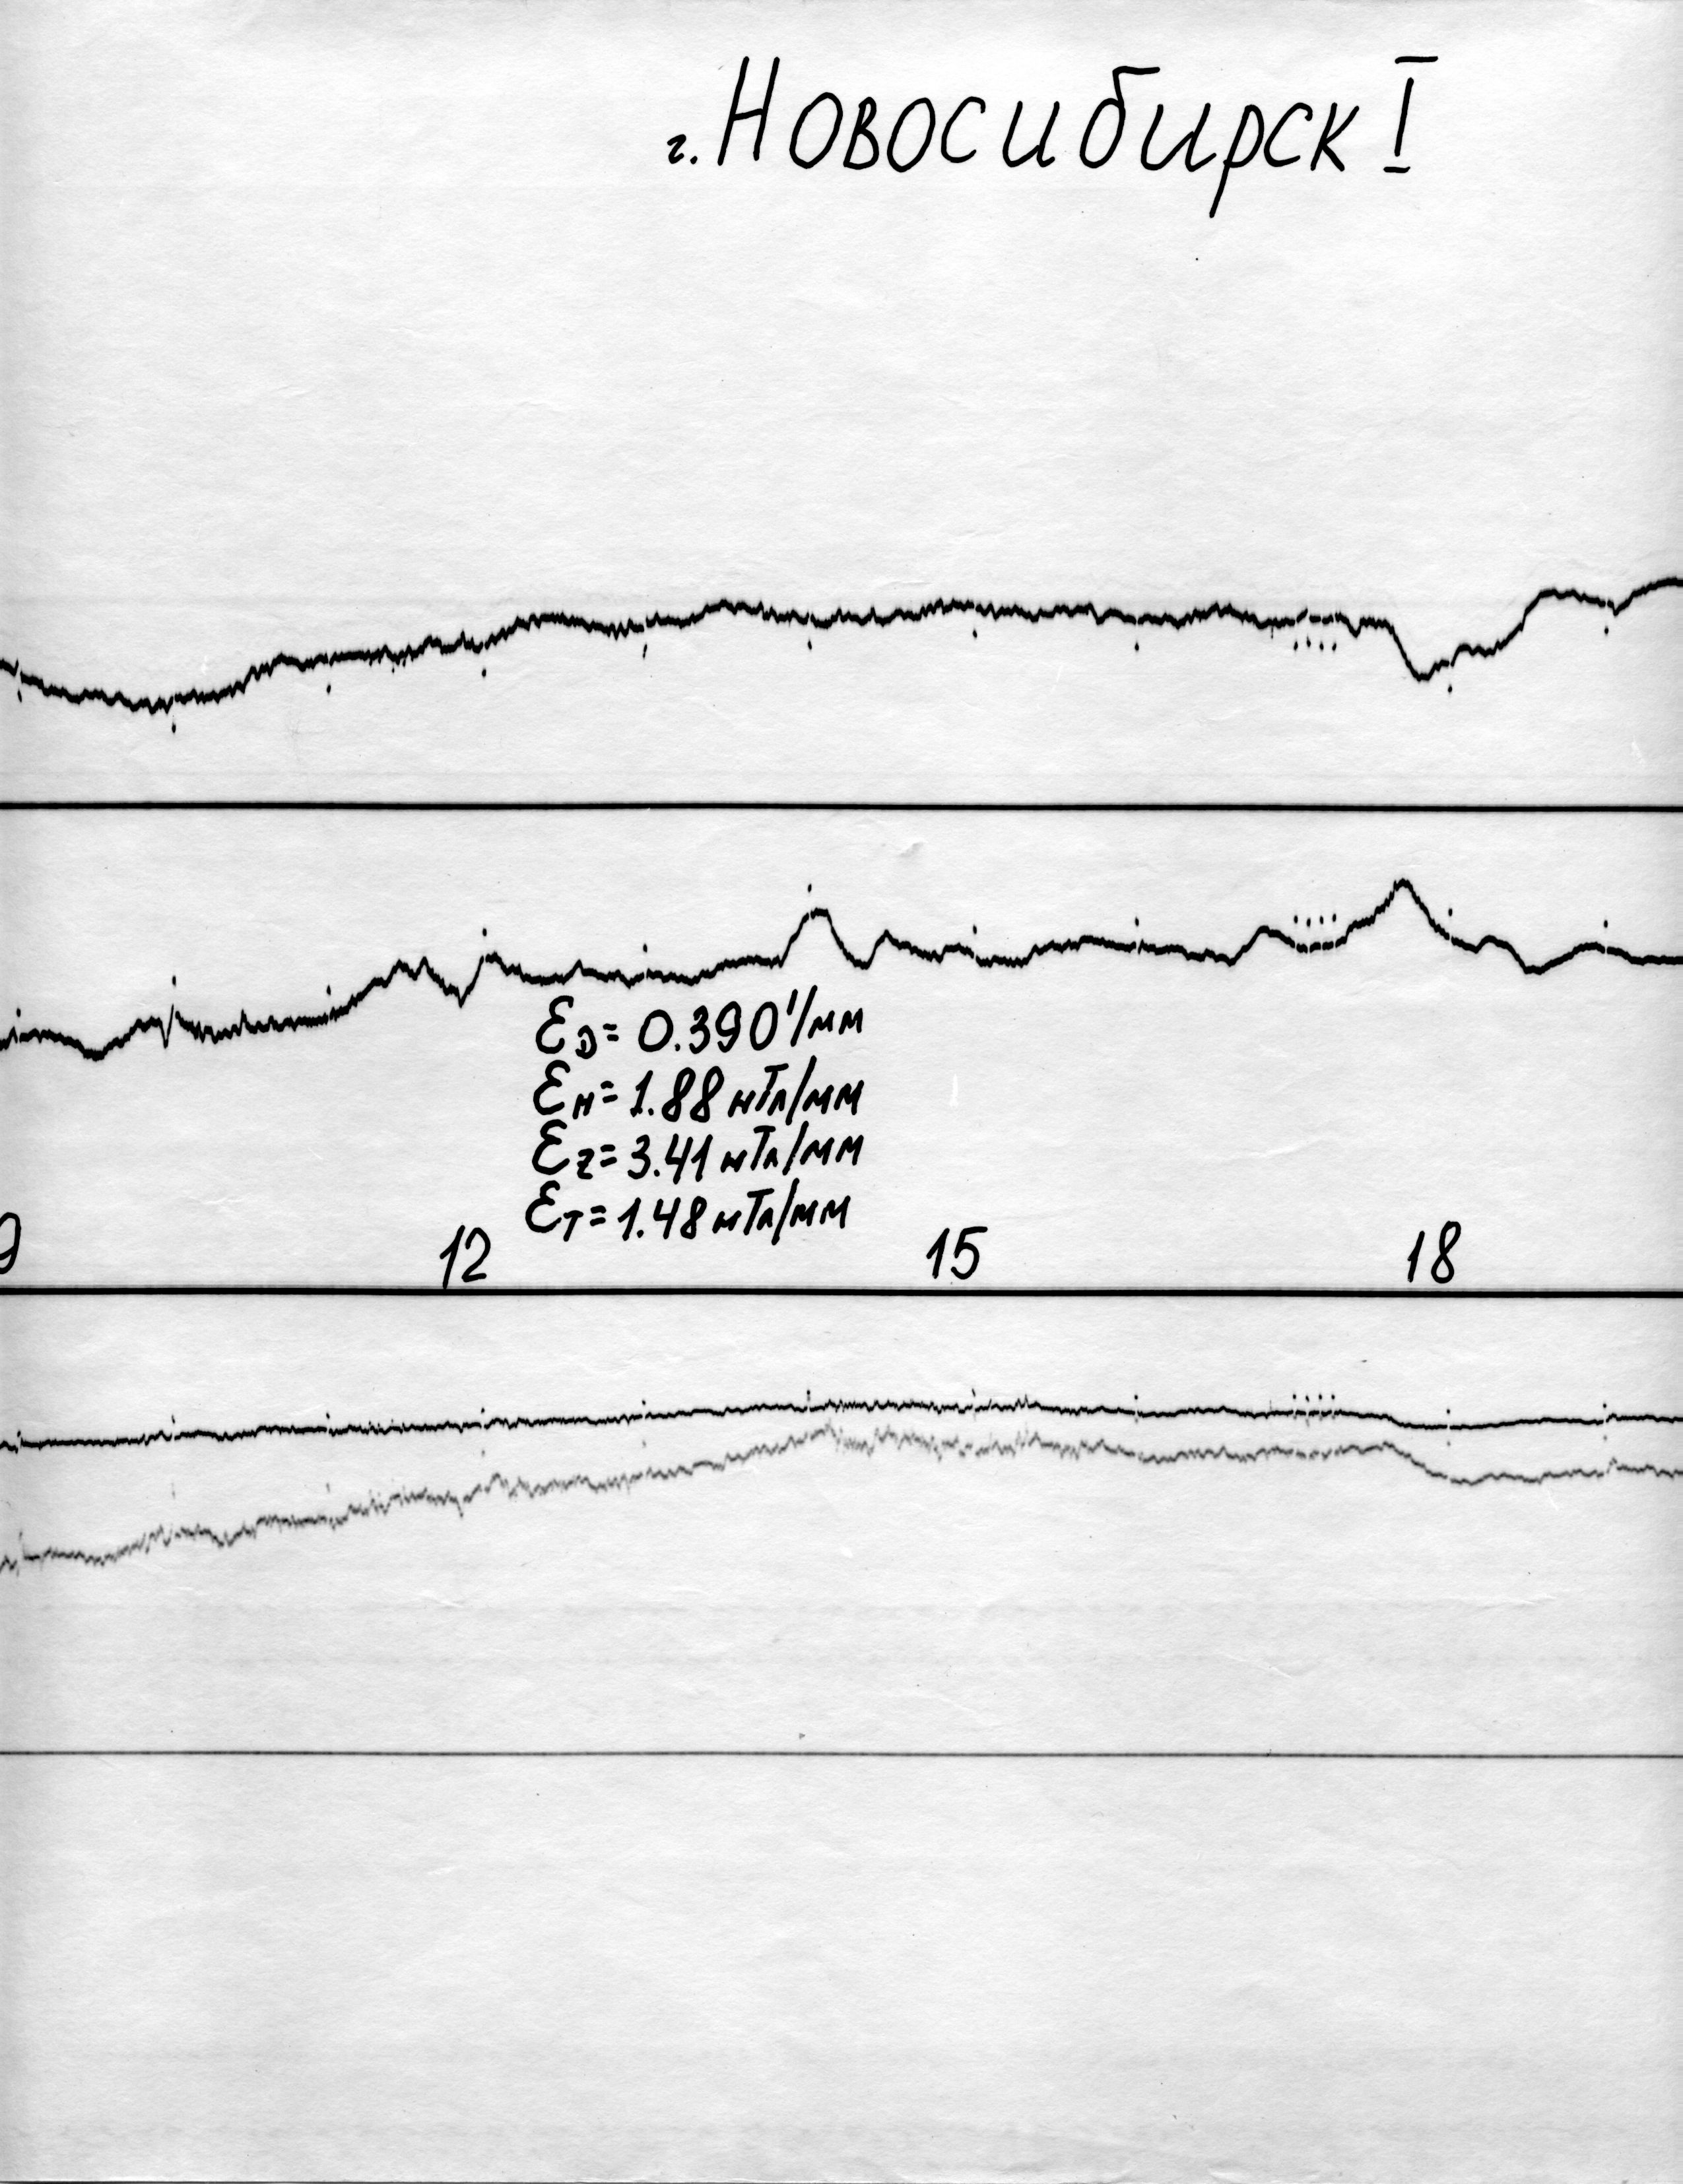 г. Новосибирск I
ƐD = 0.390'/мм
ƐH = 1.88 нТл/мм
ƐZ = 3.41 нТл/мм
ƐT = 1.48 нТл/мм
9 12 15 18